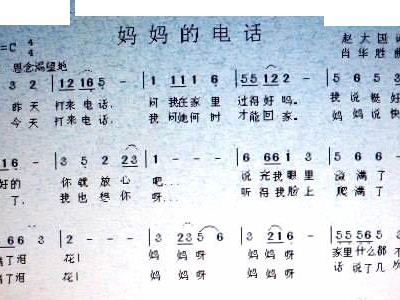 妈妈的电话
=C 4/4
赵大国
肖华胜
思念渴望地
3 2 | 1 2 1 6 5 - | 1 1 1 1 6 | 5 5 1 2 2 - | 3 3 2
昨天 打来电话, 问我在家里 过得好吗。 我说挺好
今天 打来电话, 我问她何时 才能回家。 妈妈说快
1 6 - | 3 5 2 2 3 | 1 - - - | 6 6 6 i 3 | 5 1 6 -
好的 你就放心 吧... 说完我眼里 溢满了
了, 我也想你 呀... 听得我脸上 爬满了
6 6 3 | 2 - - - | 3 2 3 5 6 | 3 2 1 6 - | 5 5 5 5 6 5
了泪 花! 妈妈呀 妈妈呀 家里什么都不
了泪 花! 妈妈呀 妈妈呀 话说了几